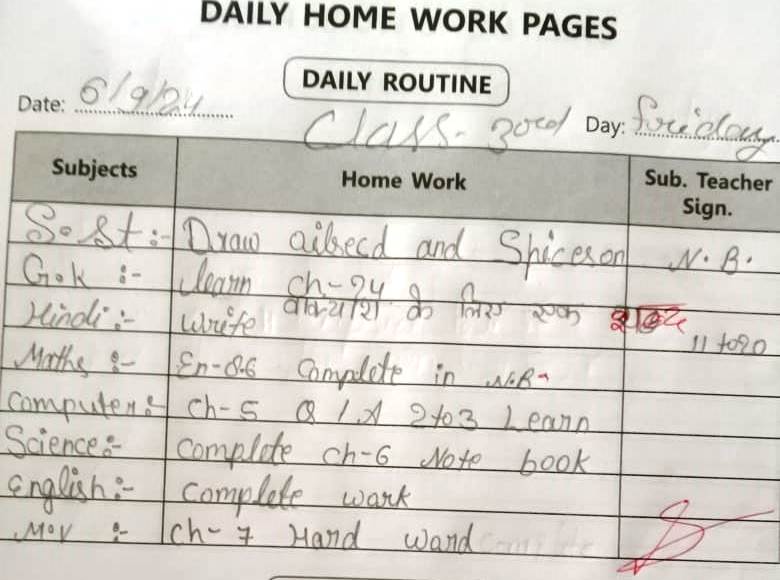 DAILY HOME WORK PAGES
DAILY ROUTINE
Date: 6/9/24
Class- 3ord Day: foriday
Subjects Home Work Sub. Teacher Sign.
S.St:- Draw ailsecd and Spices on N.B.
G.k :- learn ch-24
Hindi:- write वाक्यांश के लिए एक शब्द 11 to 20
Maths :- En-8.6 Complete in N.B-
Computer:- Ch-5 Q/A 2 to 3 Learn
Science:- complete ch-6 Note book
English:- Complete wark
M.V :- Ch-7 Hard ward